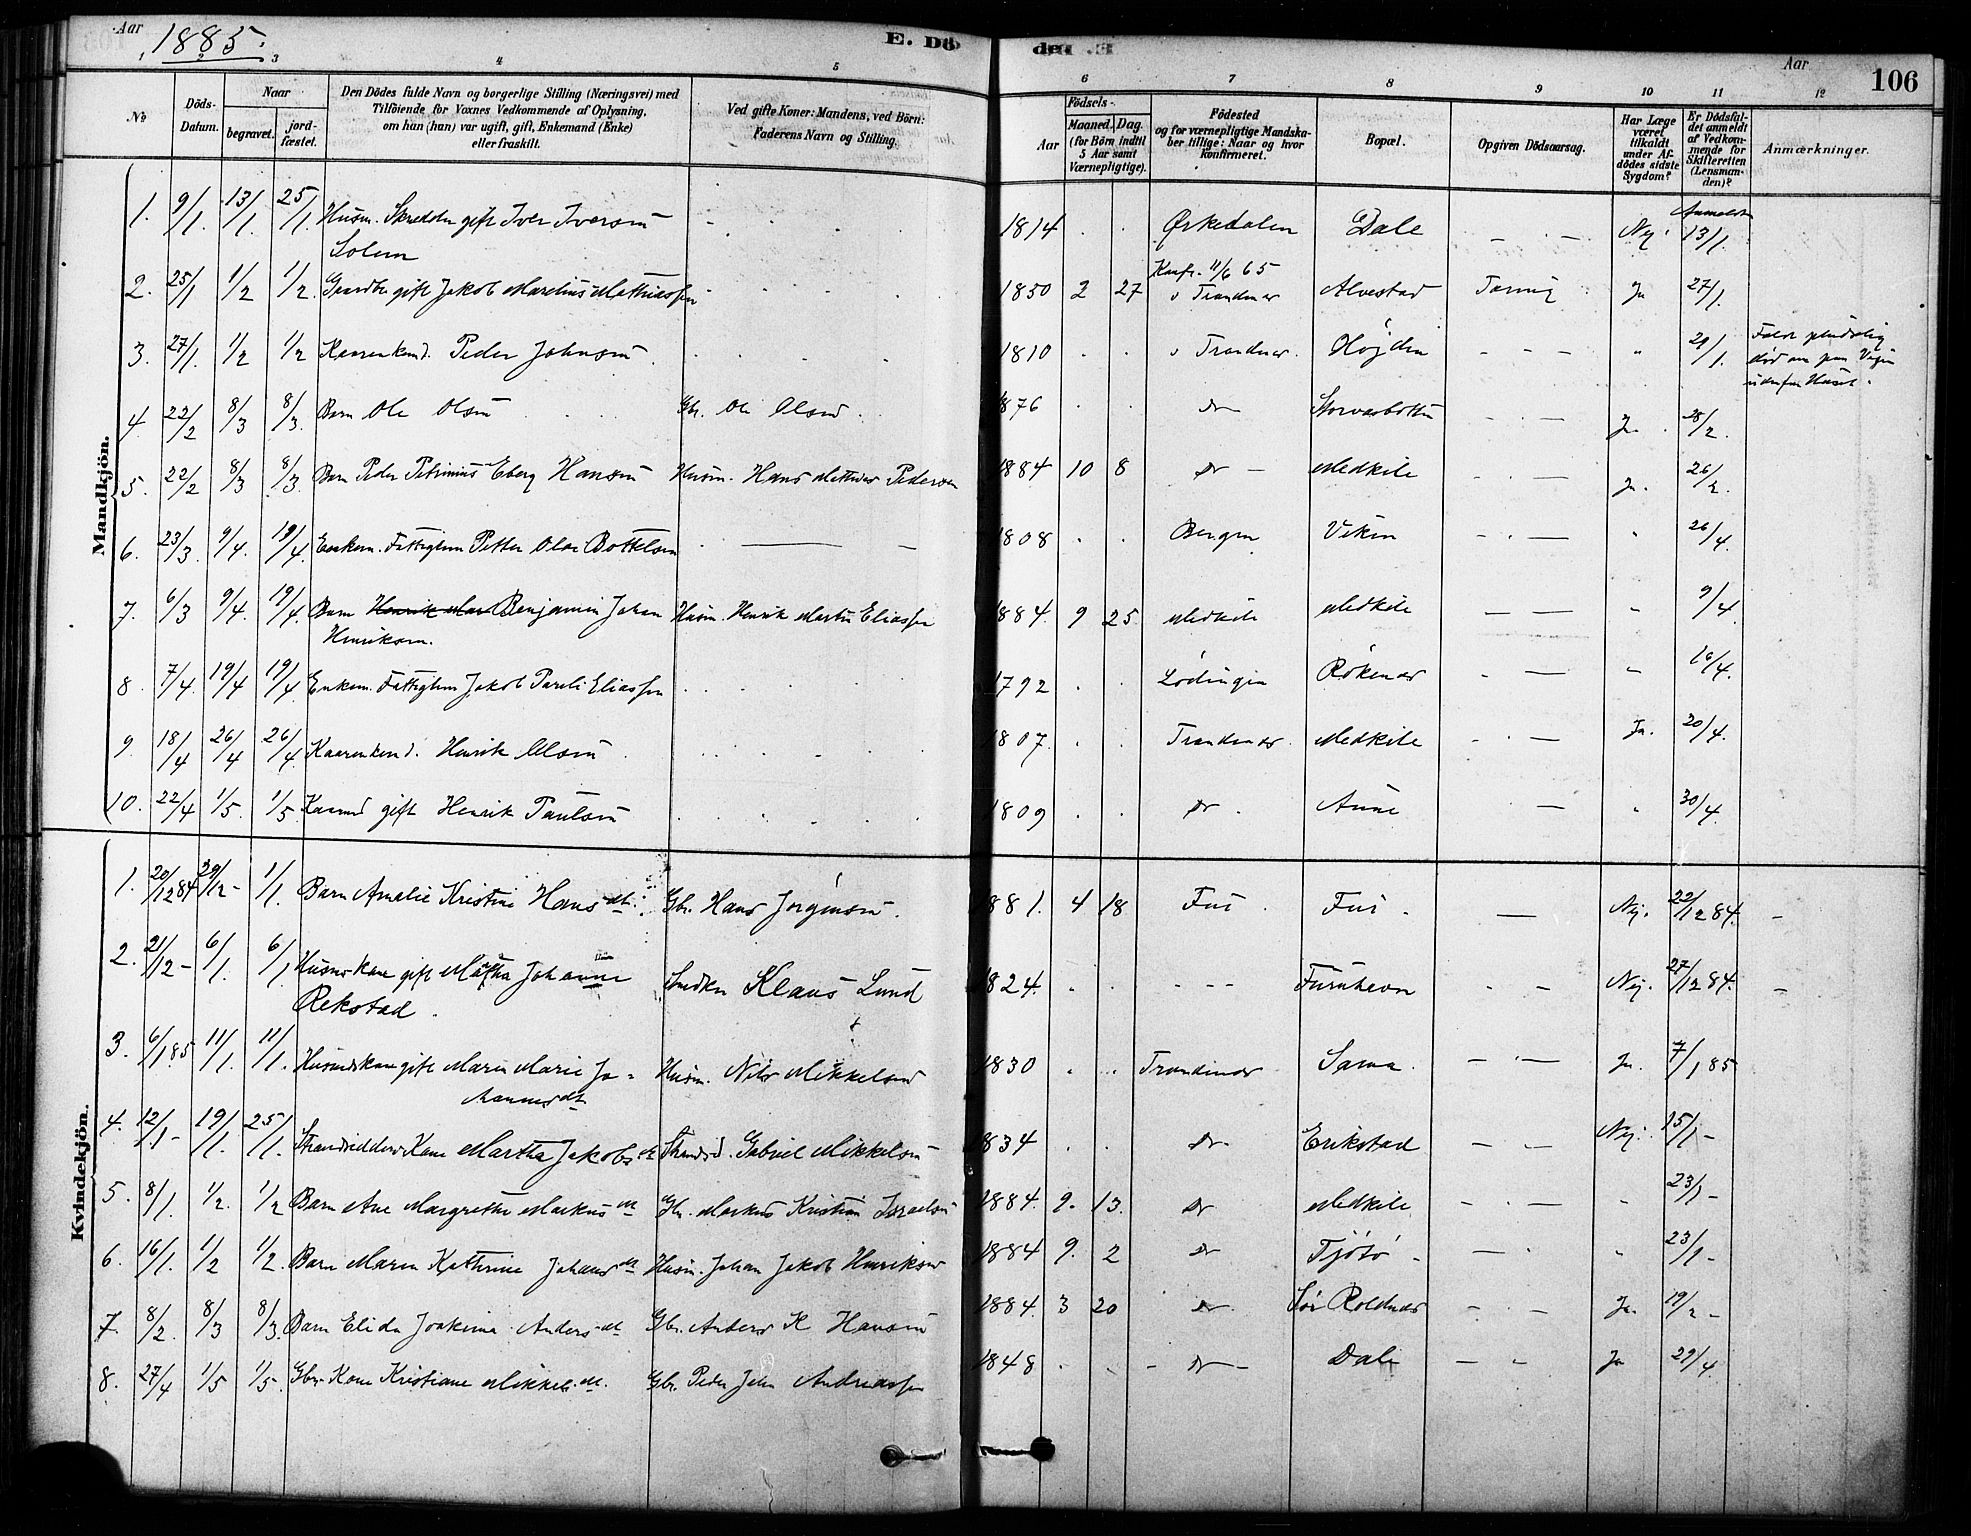 Aar 1885.
E. Dö
1 2 3 4 5
No
Döds-Datum.
Naar
begravet.
jord-fæstet.
Den Dödes fulde Navn og borgerlige Stilling (Næringsvei) med
Tilföiende for Voxnes Vedkommende af Oplysning,
om han (hun) var ugift, gift, Enkemand (Enke)
eller fraskilt.
Ved gifte Koner: Mandens, ved Börn:
Faderens Navn og Stilling.
Mandkjön.
1. 9/1. 13/1. 25/1. Husm. Skredder gift Iver Iversen
Solem
2. 25/1 1/2 1/2. Gaardbr gift Jakob Marelius Mathiassen
3. 27/1. 1/2 1/2 Kaarenkmd. Peder Johnsen
4. 22/2 8/3 8/3. Barn Ole Olsen Gbr. Ole Olsen.
5. 22/2 8/3 8/3. Barn Peder Petrinius Eberg Hansen Husm. Hans Mathias Pedersen
6. 23/3. 9/4. 19/4. Enkem. Fattiglem Petter Olai Bottelsen
7. 6/3 9/4. 19/4. Barn Benjamin Johan Husm. Henrik Martin Eliassen
Henriksen.
8. 7/4. 19/4 19/4. Enkem. Fattiglem Jakob Pareli Eliassen
9 18/4 26/4 26/4. Kaarenkmd. Henrik Olsen
10. 22/4 1/5. 1/5. Kaarmd gift Henrik Paulsen
Kvindekjön.
1. 20/12 84 29/12- 1/1. Barn Amalie Kristine Hansdt. Gbr. Hans Jørgensen.
2. 21/12- 6/1. 6/1. Husmskone gift Martha Johanne
Rekstad. Snedker Klaus Lund
3. 6/1 85 11/1. 11/1. Husmdskone gift Maren Marie Jo- Husm. Nils Mikkelsen
hannesdt.
4. 12/1- 19/1. 25/1. Strandsidders Kone Martha Jakobsdt Strandsd. Gabriel Mikkelsen
5. 8/1. 1/2. 1/2 Barn Ane Margrethe Markusdt Gbr. Markus Kristian Israelsen
6. 16/1. 1/2 1/2. Barn Maren Kathrine Johansdt Husm. Johan Jakob Henriksen
7. 8/2. 8/3 8/3. Barn Elida Joakima Andersdt Gbr. Anders K Hansen
8. 27/4 1/5 1/5. Gbr. Kone Kristiane Mikkelsdt. Gbr. Peder John Andreassen
de .E
Aar 106
6 7 8 9 10 11 12
Aar
Födsels-
Maaned. Dag.
(for Börn indtil
5 Aar samt
Værnepligtige).
Födested
og for værnepligtige Mandska-
ber tillige: Naar og hvor
konfirmeret.
Bopæl.
Opgiven Dödsaarsag.
Har Læge
været
tilkaldt
under Af-
dödes sidste
Sygdom?
Er Dödsfal-
det anmeldt
af Vedkom-
mende for
Skifteretten
(Lensman-
den)?
Anmærkninger.
1814 Ørkedalen Dale Nej. Anmeldt 13/1.
Konfr. 11/6 65
1850 2 27 v Trondnes Alvestad Tæring Ja 27/1.
1810 v Trondnes. Højden " 29/1. Faldt pludselig
død om paa Vejen
udenfor Huset.
1876 Do Storvasbotten Ja. 28/2.
1884 10 8 Do Medkile Ja. 26/2.
1808 Bergen Viken " 26/4.
1884. 9 25. Medkile Medkile " 9/4
1792 Lødingen Røkenes " 16/4.
1807. Trondenes. Medkile Ja. 20/4.
1809 Do. Aune " 30/4.
1881. 4 18 Fus. Fus. Nej. 22/12 84.
1824. Furuheim Nej. 27/12 84.
1830 Trondenes Sama. Ja. 7/1 85
1834 Do Erikstad Nej. 15/1-
1884. 9. 13. Do Medkile " 23/1-
1884 9. 2 Do Tjøtø " 23/1-
1884. 3 20 Do Sør Roldnes Ja. 19/2-
1848 Do Dale Ja 29/4.